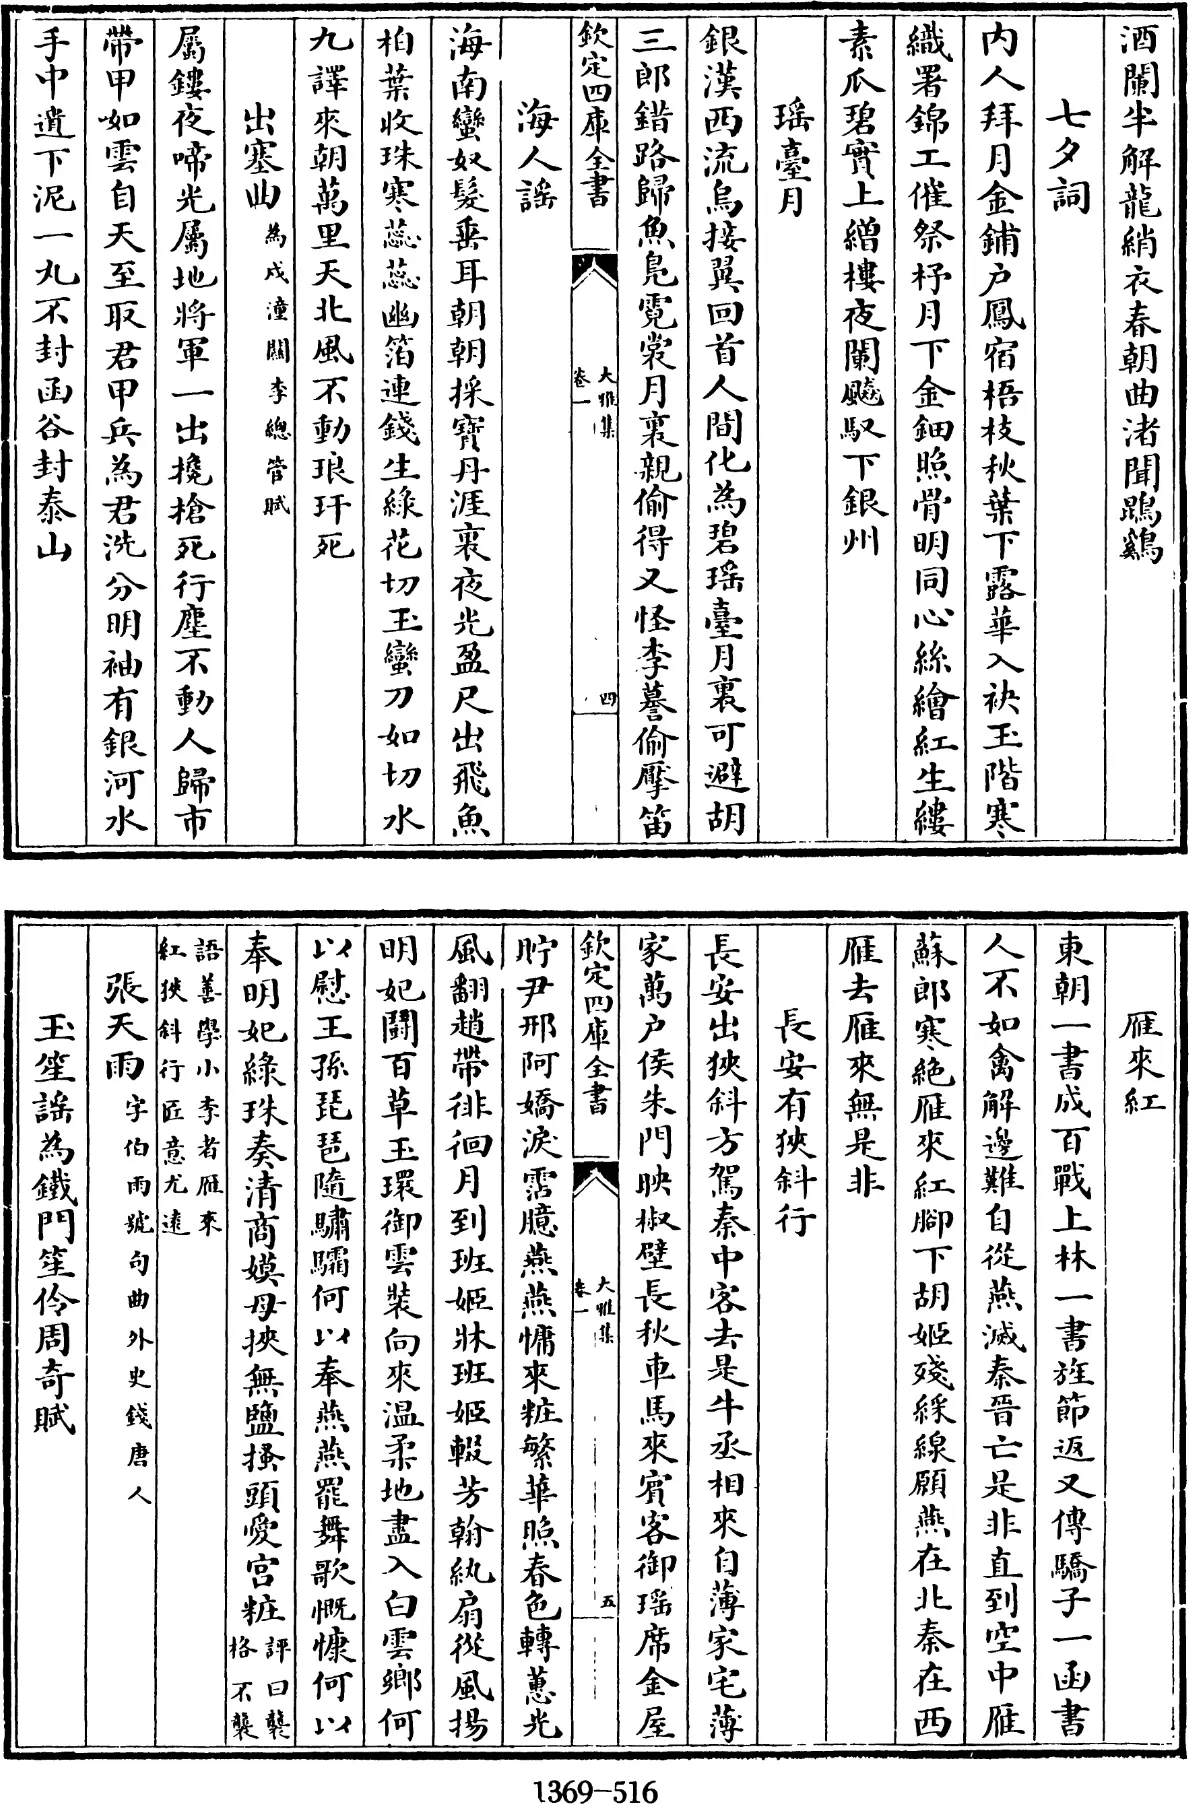 酒闌半解龍綃衣春朝曲渚聞鵾鷄
七夕詞
内人拜月金鋪户鳳宿梧枝秋葉下露華入袂玉階寒
織署錦工催祭杼月下金鈿照骨明同心絲繪紅生縷
素瓜碧實上繒樓夜闌飈馭下銀州
瑶臺月
銀漢西流烏接翼回首人間化為碧瑶臺月裏可避胡
三郎錯路歸魚鳬霓裳月裏親偷得又怪李謩偷擪笛
欽定四庫全書
大雅集
卷一
四
海人謡
海南蠻奴髮垂耳朝朝採寶丹涯裏夜光盈尺出飛魚
柏葉收珠寒蕊蕊幽箔連錢生綠花切玉蠻刀如切水
九譯來朝萬里天北風不動琅玕死
出塞曲為戍潼關李總管賦
屬鏤夜啼光屬地將軍一出攙搶死行塵不動人歸市
帶甲如雲自天至取君甲兵為君洗分明袖有銀河水
手中遺下泥一丸不封函谷封泰山
雁來紅
東朝一書成百戰上林一書旌節返又傳驕子一函書
人不如禽解邊難自從燕滅秦晉亡是非直到空中雁
蘇郎寒絶雁來紅脚下胡姬殘綵線願燕在北秦在西
雁去雁來無是非
長安有狹斜行
長安出狹斜方駕秦中客去是牛丞相來自薄家宅薄
家萬户侯朱門映椒壁長秋車馬來賓客御瑶席金屋
欽定四庫全書
大雅集
卷一
五
貯尹邢阿嬌淚霑臆燕燕慵來粧繁華照春色轉蕙光
風翻趙帶徘徊月到班姬牀班姬輟芳翰紈扇從風揚
明妃鬬百草玉環御雲裝向來温柔地盡入白雲鄉何
以慰王孫琵琶隨驌驦何以奉燕燕罷舞歌慨慷何以
奉明妃綠珠奏清商嫫母挾無鹽搔頭愛宫粧評曰襲格不襲
語善學小李者雁來紅狹斜行匠意尤遠
張天雨字伯雨號句曲外史錢唐人
玉笙謡為鐵門笙伶周奇賦
1369—516